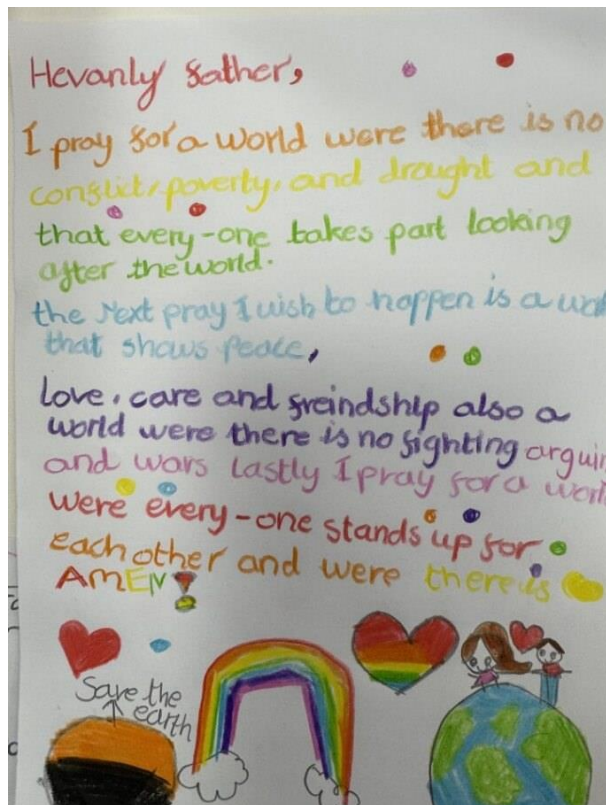 Hevanly father,
I pray for a world were there is no
conflict, poverty, and drought and
that every-one takes part looking
after the world.
the next pray I wish to happen is a
that shows peace,
love, care and freindship also a
world were there is no fighting
and wars lastly I pray for a
were every-one stands up for
each other and were there is
AMEN!
Save the
earth